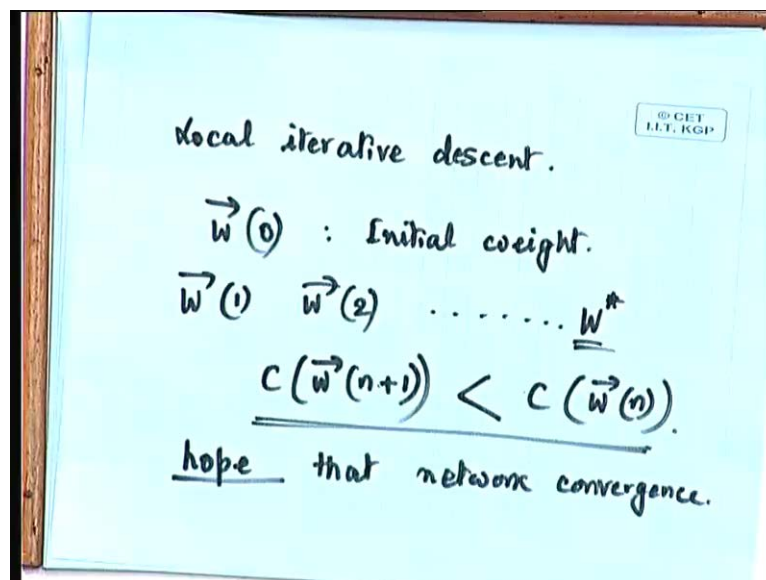 © CET
I.I.T. KGP
Local iterative descent.
w⃗(0) : Initial weight.
w⃗(1) w⃗(2) ........ w*
C(w⃗(n+1)) < C(w⃗(n)).
hope that network convergence.